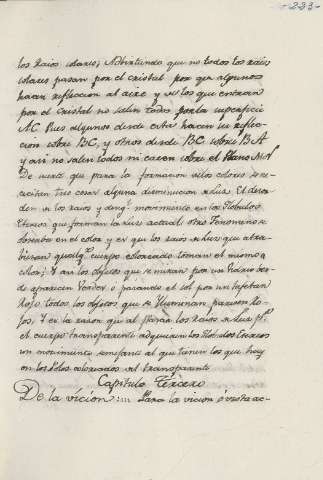 -233-
los Raios solares; Advirtiendo que no todos los raios
solares pasan por el cristal por que algunos
hacen reflecion al aire y de los que entraron
por el cristal no salen todos por la superficie
AC Pues algunos desde esta hacen su refle-
cion sobre BC, y otros desde BC sobre BA
y asi no salen todos ni caen sobre el Plano
De suerte que para la formacion de los colores se ne-
cesitan tres cosas alguna disminucion de luz El desor-
den de los raios y movimiento en los Globulos
Etereos que forman la luz actual, otro Fenomeno se
observa en el color y es que los raios de luz que atra-
biesan cuerpo coloreado toman el mismo
color; Y asi los objetos que se miran por un Vidrio ver-
de aparecen Verdes, o pasando el sol por un tafetan
Rojo todos los objetos que se Yluminan parecen Ro-
jos, Y es la razon que al pasar los Raios de luz
el cuerpo transparente adquieren los Globulos Etereos
un movimiento semejante al que tienen los que hay
en los Poros coloreados del transparente
Capitulo Tercero
De la vicion:... Para la vicion ó vista ac-